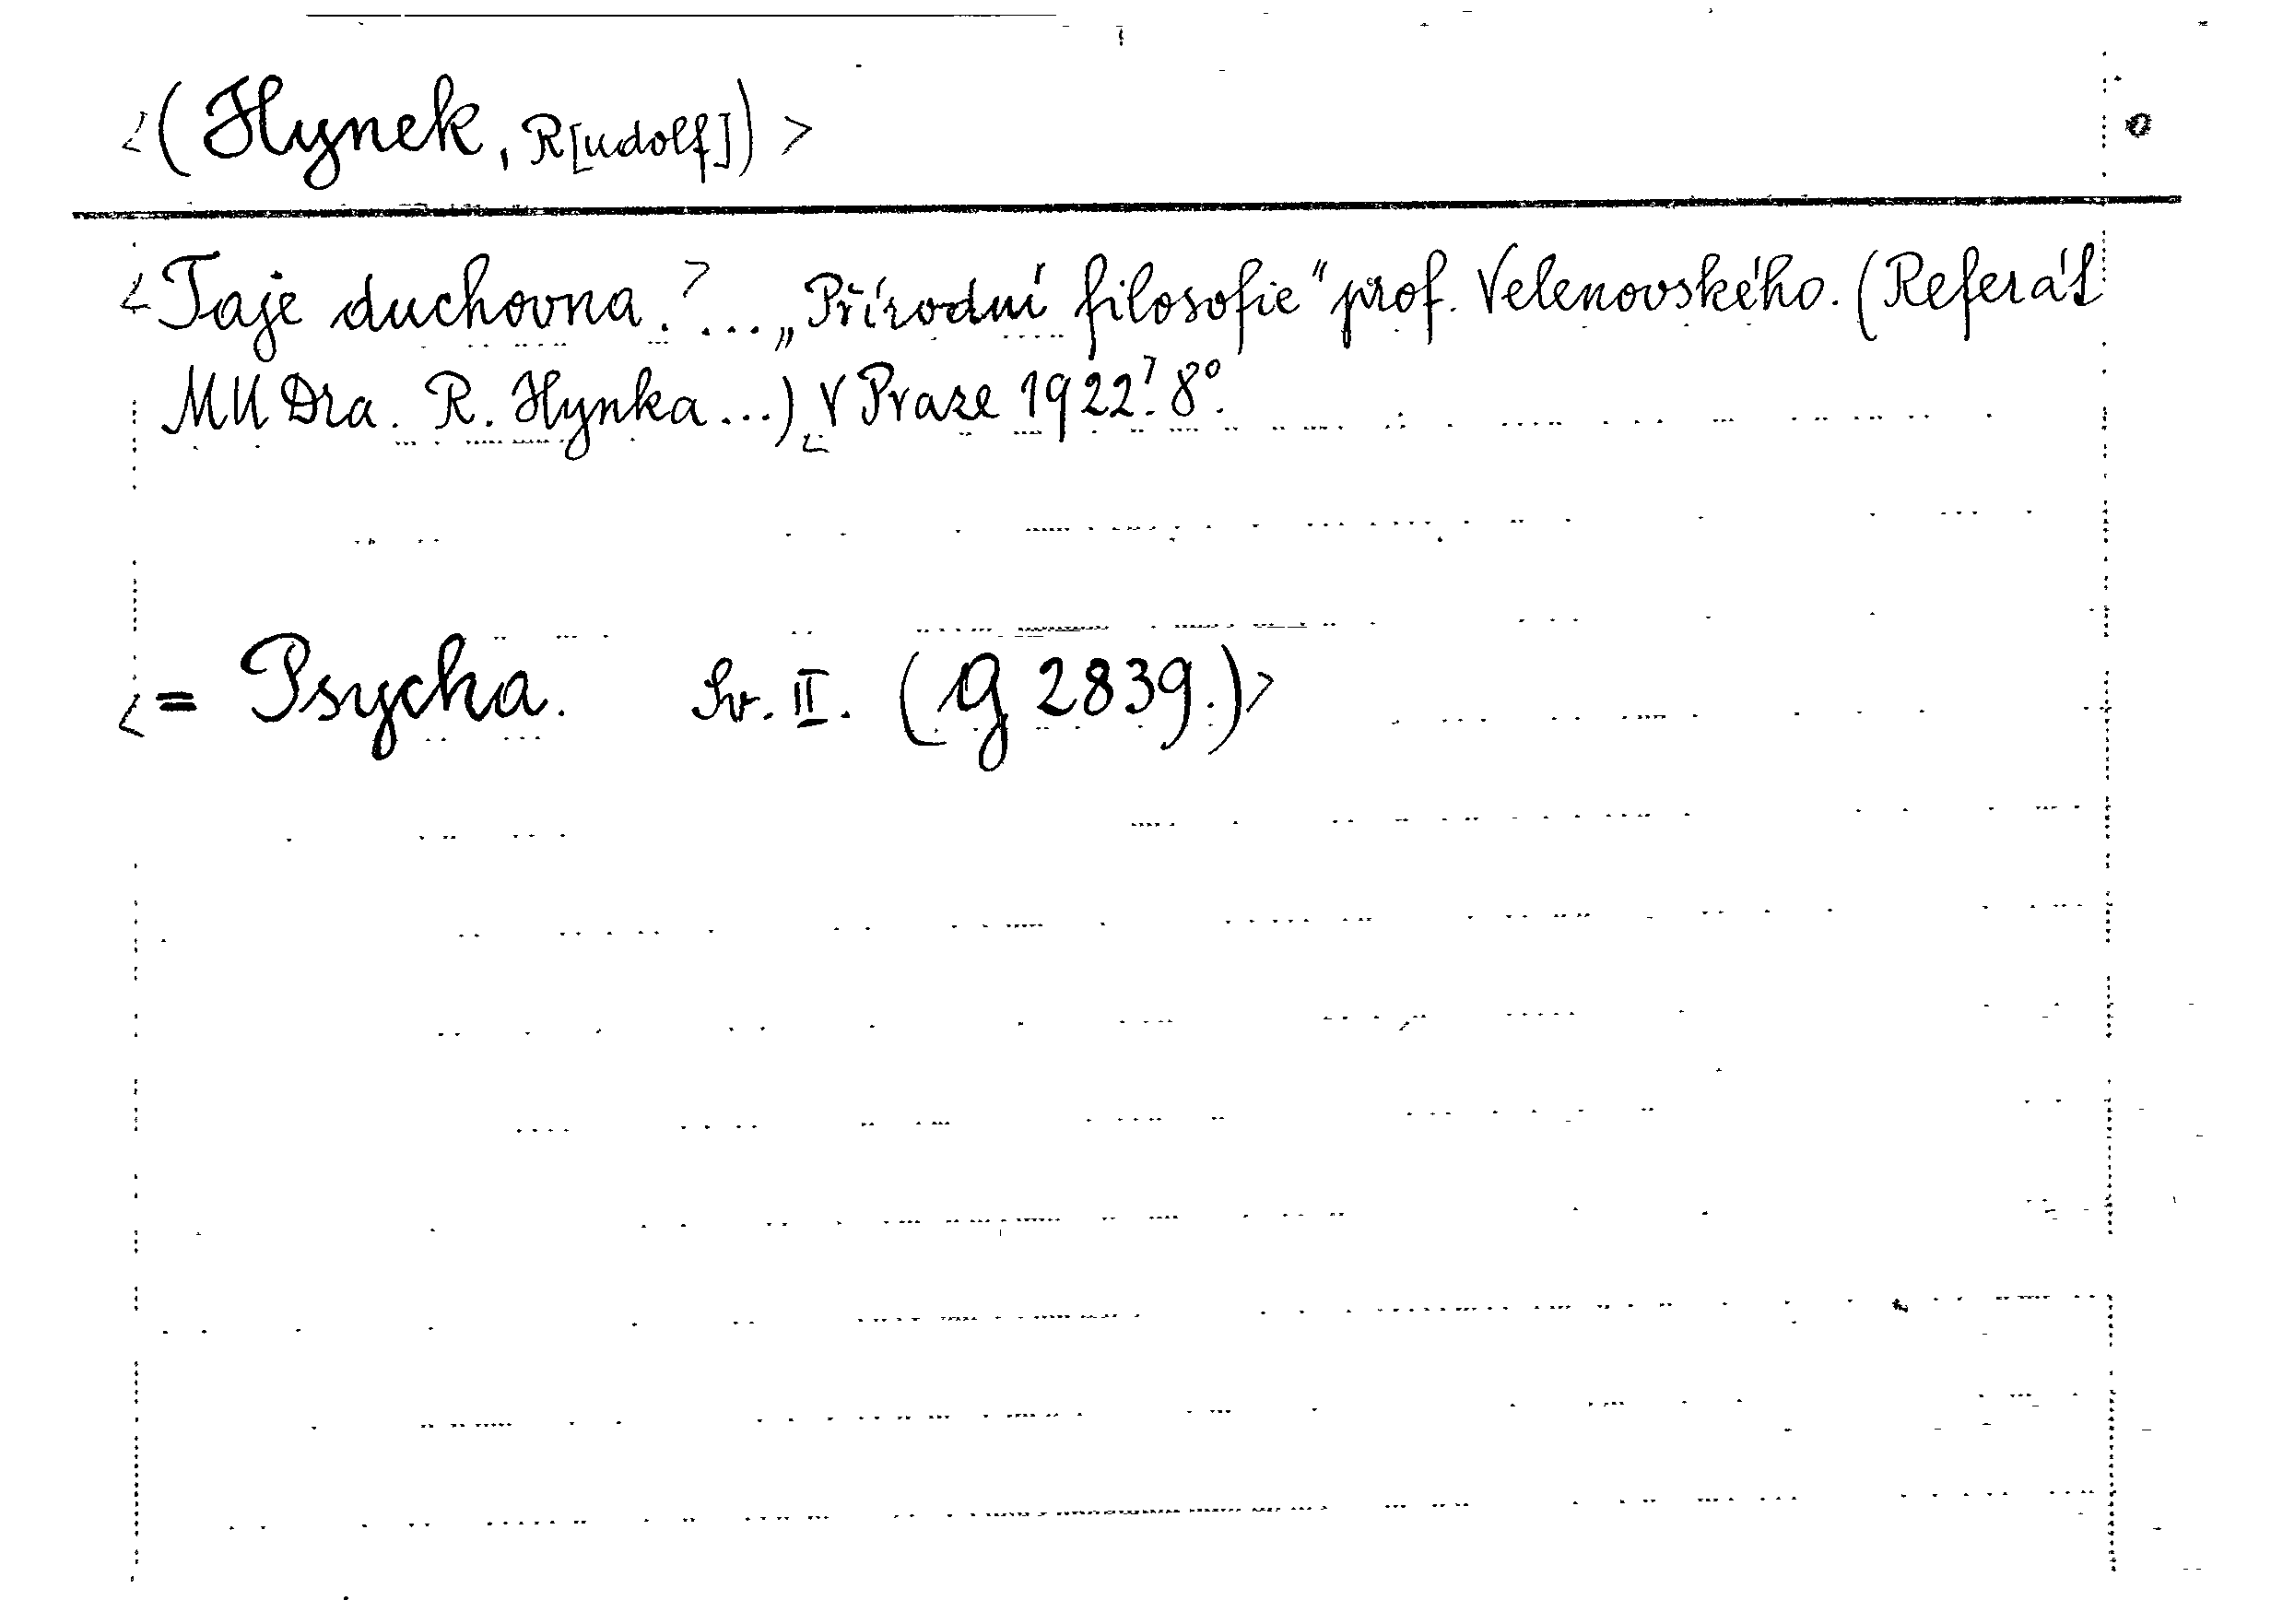 <(Hynek, R[udolf])>
<Taje duchovna.>... „Přírodní filosofie" prof. Velenovského. (Referát
MUDra. R. Hynka...) <V Praze 1922>. 8°.
<= Psycha. Sv. II. (G 2839.)>